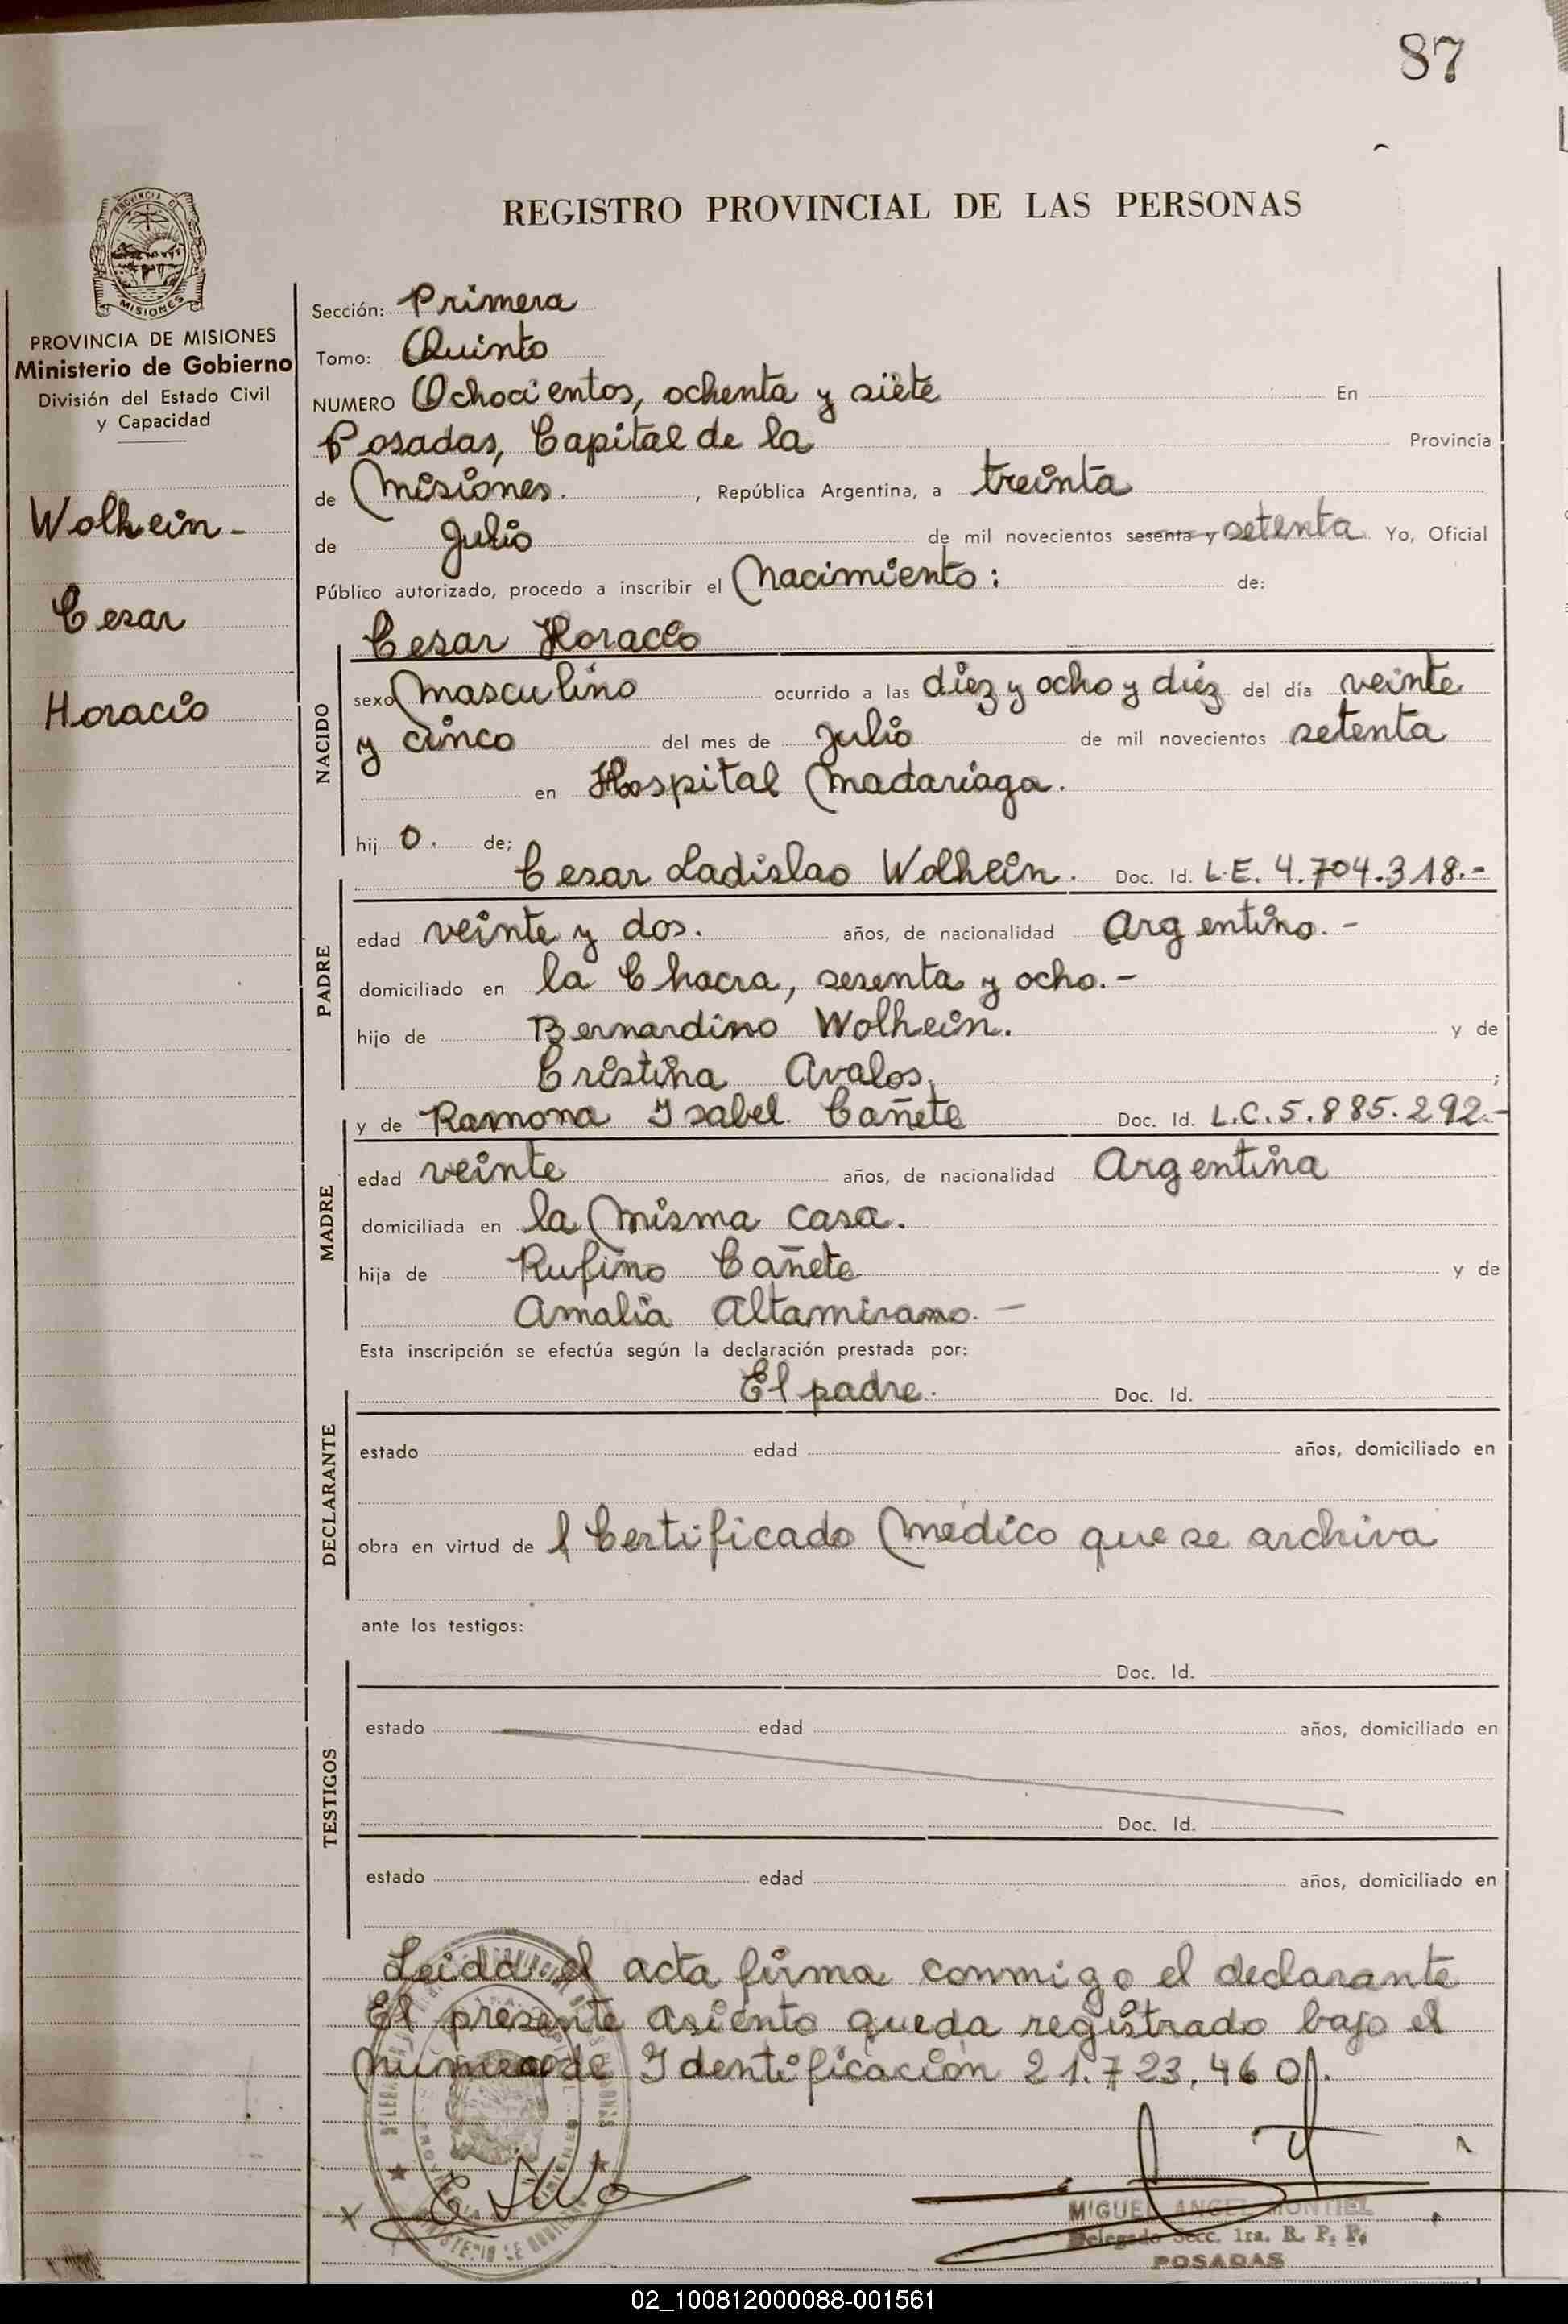 87
REGISTRO PROVINCIAL DE LAS PERSONAS
PROVINCIA DE
MISIONES
PROVINCIA DE MISIONES
Ministerio de Gobierno
División del Estado Civil
y Capacidad
Wolhein -
Cesar
Horacio
Sección: Primera
Tomo: Quinto
NUMERO Ochocientos, ochenta y siete En
Posadas, Capital de la Provincia
de Misiones. , República Argentina, a treinta
de Julio de mil novecientos sesenta y setenta Yo, Oficial
Público autorizado, procedo a inscribir el Nacimiento: de:
Cesar Horacio
NACIDO
sexo masculino ocurrido a las diez y ocho y diez del día veinte
y cinco del mes de Julio de mil novecientos setenta
en Hospital Madariaga.
hij o. de;
PADRE
Cesar Ladislao Wolhein. Doc. Id. L.E. 4.704.318.-
edad veinte y dos. años, de nacionalidad Argentino.-
domiciliado en la Chacra, sesenta y ocho.-
hijo de Bernardino Wolhein. y de
Cristina Avalos. ;
y de Ramona Isabel Cañete Doc. Id. L.C. 5.885.292.-
MADRE
edad veinte años, de nacionalidad Argentina
domiciliada en la misma casa.
hija de Rufino Cañete y de
Amalia Altamirano. -
Esta inscripción se efectúa según la declaración prestada por:
El padre. Doc. Id.
DECLARANTE
estado edad años, domiciliado en
obra en virtud de l Certificado Médico que se archiva
ante los testigos:
Doc. Id.
TESTIGOS
estado edad años, domiciliado en
Doc. Id.
estado edad años, domiciliado en
Leida el acta firma conmigo el declarante
El presente asiento queda registrado bajo el
numero de Identificación 21.723.460.
MIGUEL ANGEL MONTIEL
Delegado Secc. 1ra. R. P. P.
POSADAS
02_100812000088-001561